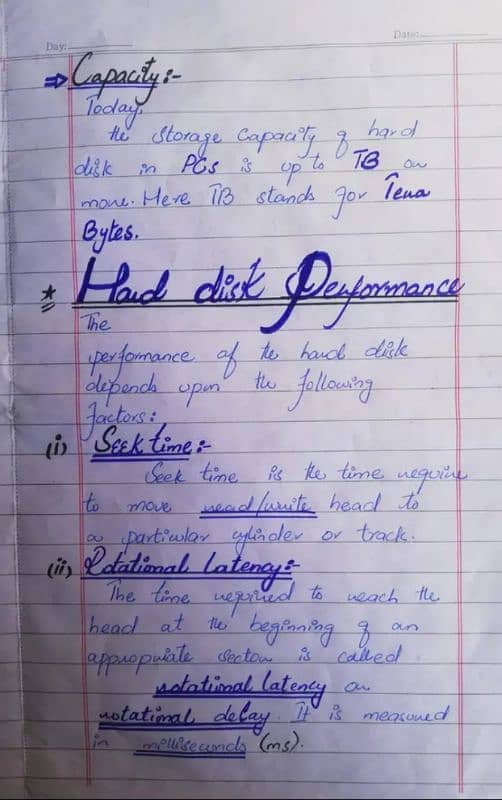 Day:
Date:
⇒ Capacity:-
Today,
the storage capacity of hard
disk in PCs is up to TB or
more. Here TB stands for Tera
Bytes.
* Hard disk Performance
The
performance of the hard disk
depends upon the following
factors:
(i) Seek time:-
Seek time is the time require
to move read/write head to
a particular cylinder or track.
(ii) Rotational Latency:-
The time required to reach the
head at the beginning of an
appropriate sector is called
rotational latency or
rotational delay. It is measured
in milliseconds (ms).